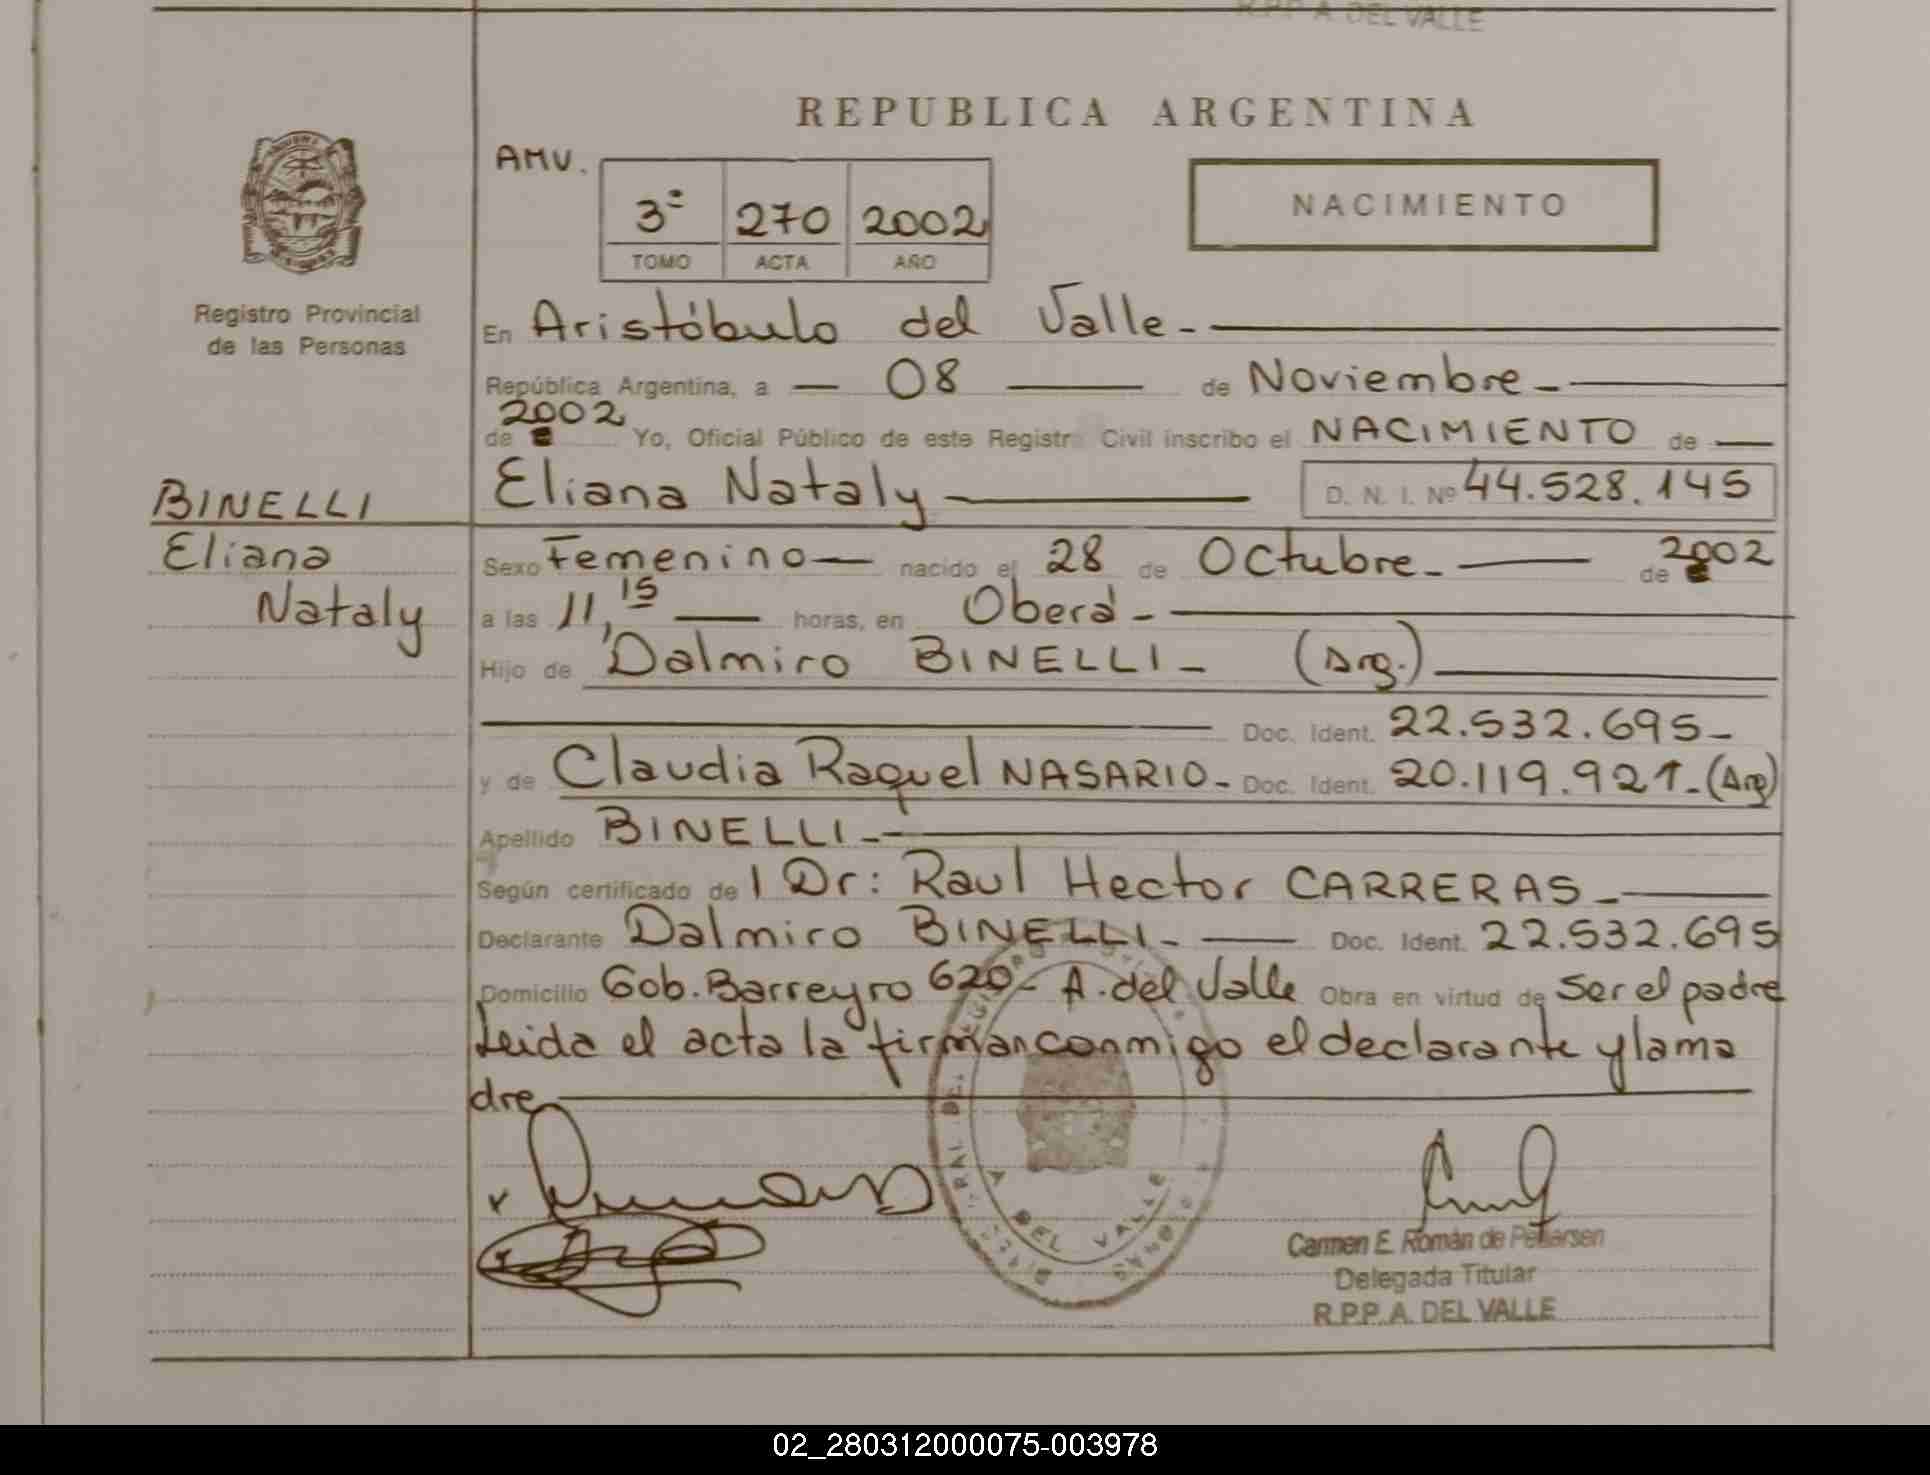 R.P.P. A. DEL VALLE
REPUBLICA ARGENTINA
AMV.
3º 270 2002
TOMO ACTA AÑO
NACIMIENTO
Registro Provincial
de las Personas
En Aristóbulo del Valle.-
República Argentina, a 08 de Noviembre.-
2002
de Yo, Oficial Público de este Registro Civil inscribo el NACIMIENTO de
BINELLI
Eliana
Nataly
Eliana Nataly D. N. I. Nº 44.528.145
Sexo Femenino nacido el 28 de Octubre.- de 2002
a las 11,15 horas, en Oberá.-
Hijo de Dalmiro BINELLI.- (Arg.)
Doc. Ident. 22.532.695.-
y de Claudia Raquel NASARIO.- Doc. Ident. 20.119.921.-(Arg)
Apellido BINELLI.-
Según certificado de l Dr: Raul Hector CARRERAS.-
Declarante Dalmiro BINELLI.- Doc. Ident. 22.532.695
Domicilio Gob. Barreyro 620.- A. del Valle Obra en virtud de ser el padre
Leida el acta la firman conmigo el declarante y la ma
dre
A DEL VALLE
Carmen E. Román de Petersen
Delegada Titular
R.P.P. A. DEL VALLE
02_280312000075-003978